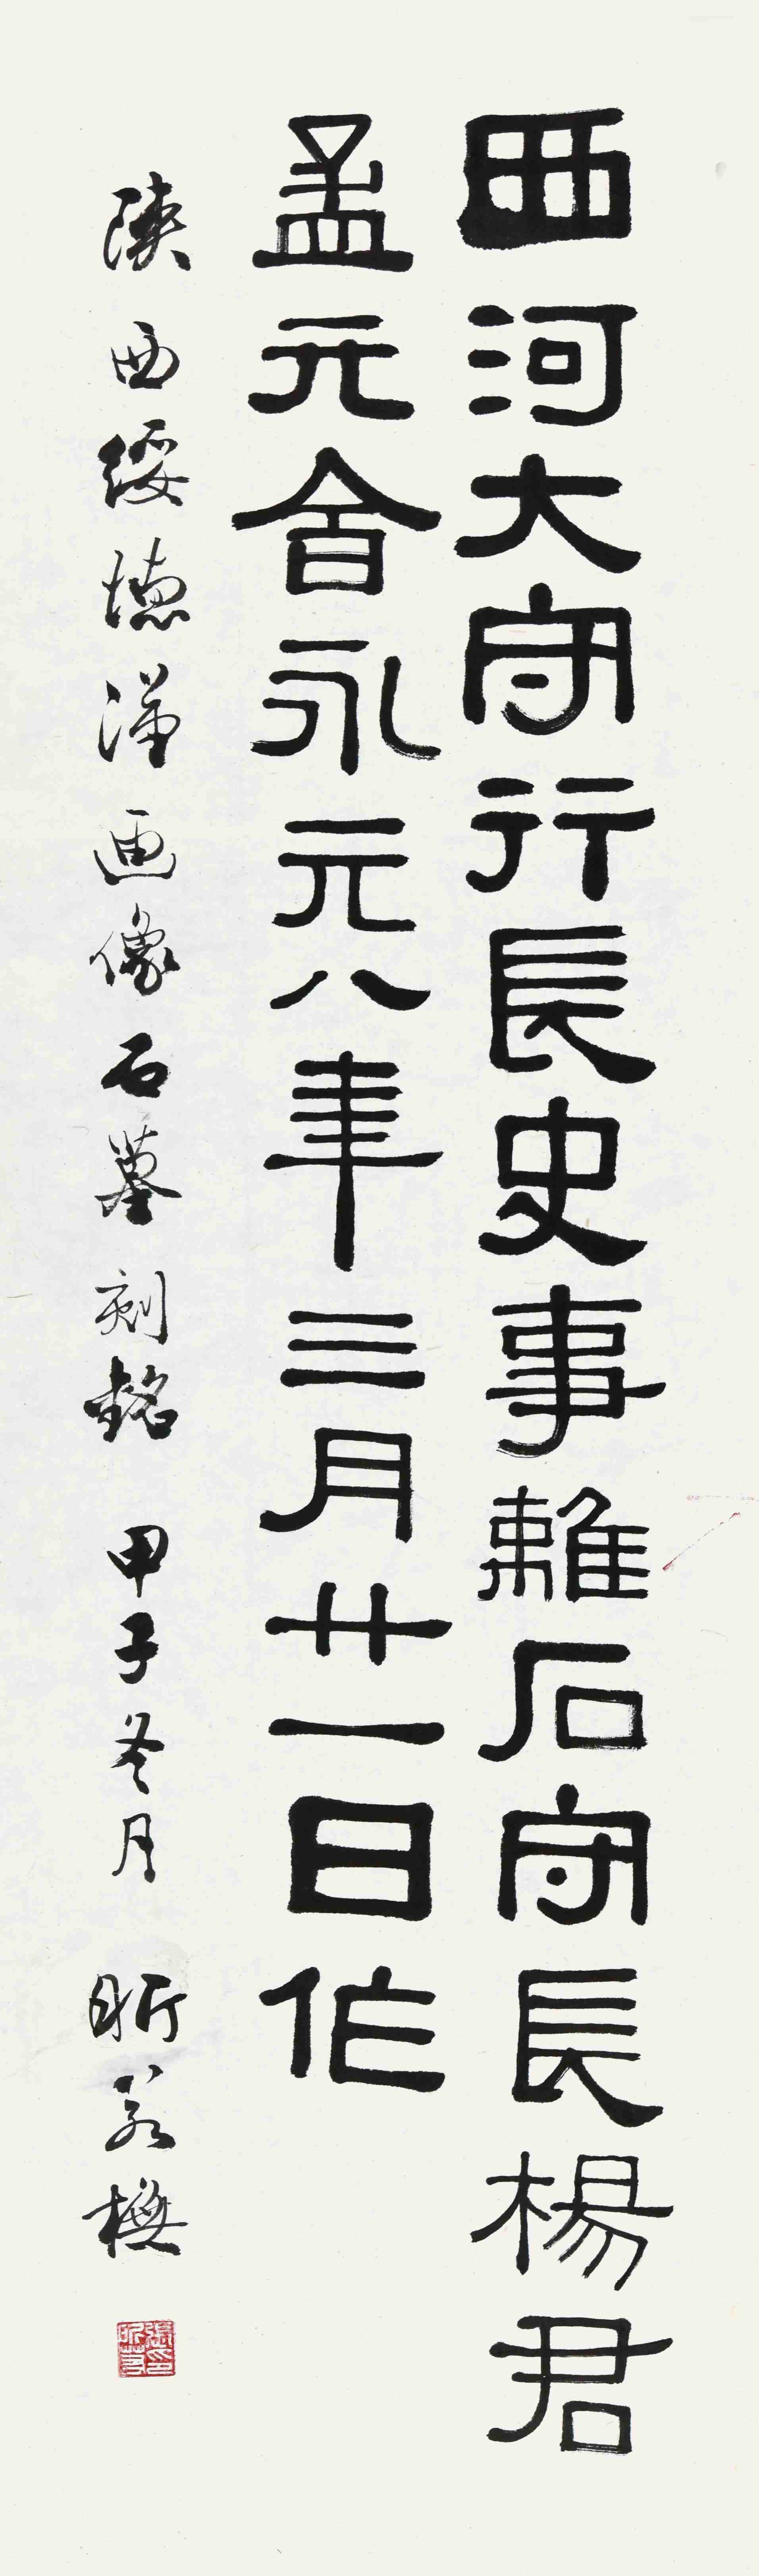 西河大守行長史事離石守長楊君
孟元舍永元八年三月廿一日作
陕西绥德汉画像石墓刻铭 甲子冬月 昕若橅